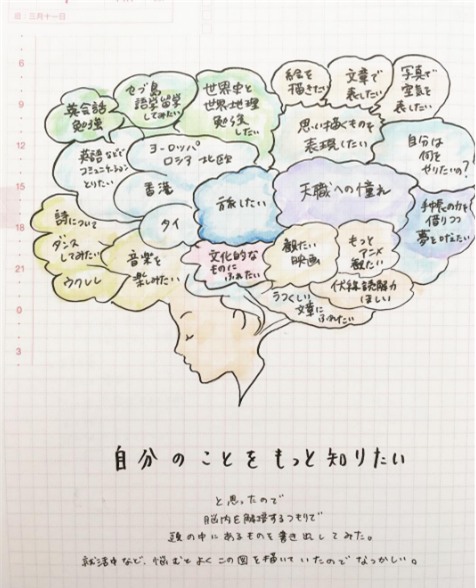 三月十一日
6
9
12
15
18
21
0
3
英会話
勉強
セブ島
語学留学
してみたい
世界史と
世界地理
勉強
したい
絵を
描きたい
文章で
表したい
写真で
空気を
表したい
英語などで
コミュニケーション
とりたい
ヨーロッパ
ロシア 北欧
思い描くものを
表現したい
自分は
何を
やりたいの?
香港
タイ
旅したい
天職への憧れ
手帳の力を
借りつつ
夢を叶えたい
詩について
ダンス
してみたい
ウクレレ
音楽を
楽しみたい
文化的な
ものに
ふれたい
観たい
映画
もっと
アニメ
観たい
うつくしい
文章に
ふれたい
伏線読解力
ほしい
自分のことをもっと知りたい
と思ったので
脳内を解剖するつもりで
頭の中にあるものを書き出してみた。
就活中など、悩むとよくこの図を描いていたのでなつかしい。